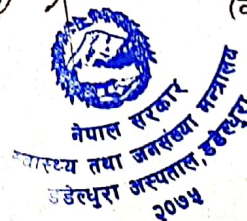 नेपाल सरकार
स्वास्थ्य तथा जनसंख्या मन्त्रालय
डडेल्धुरा अस्पताल, डडेल्धुरा
२०७५